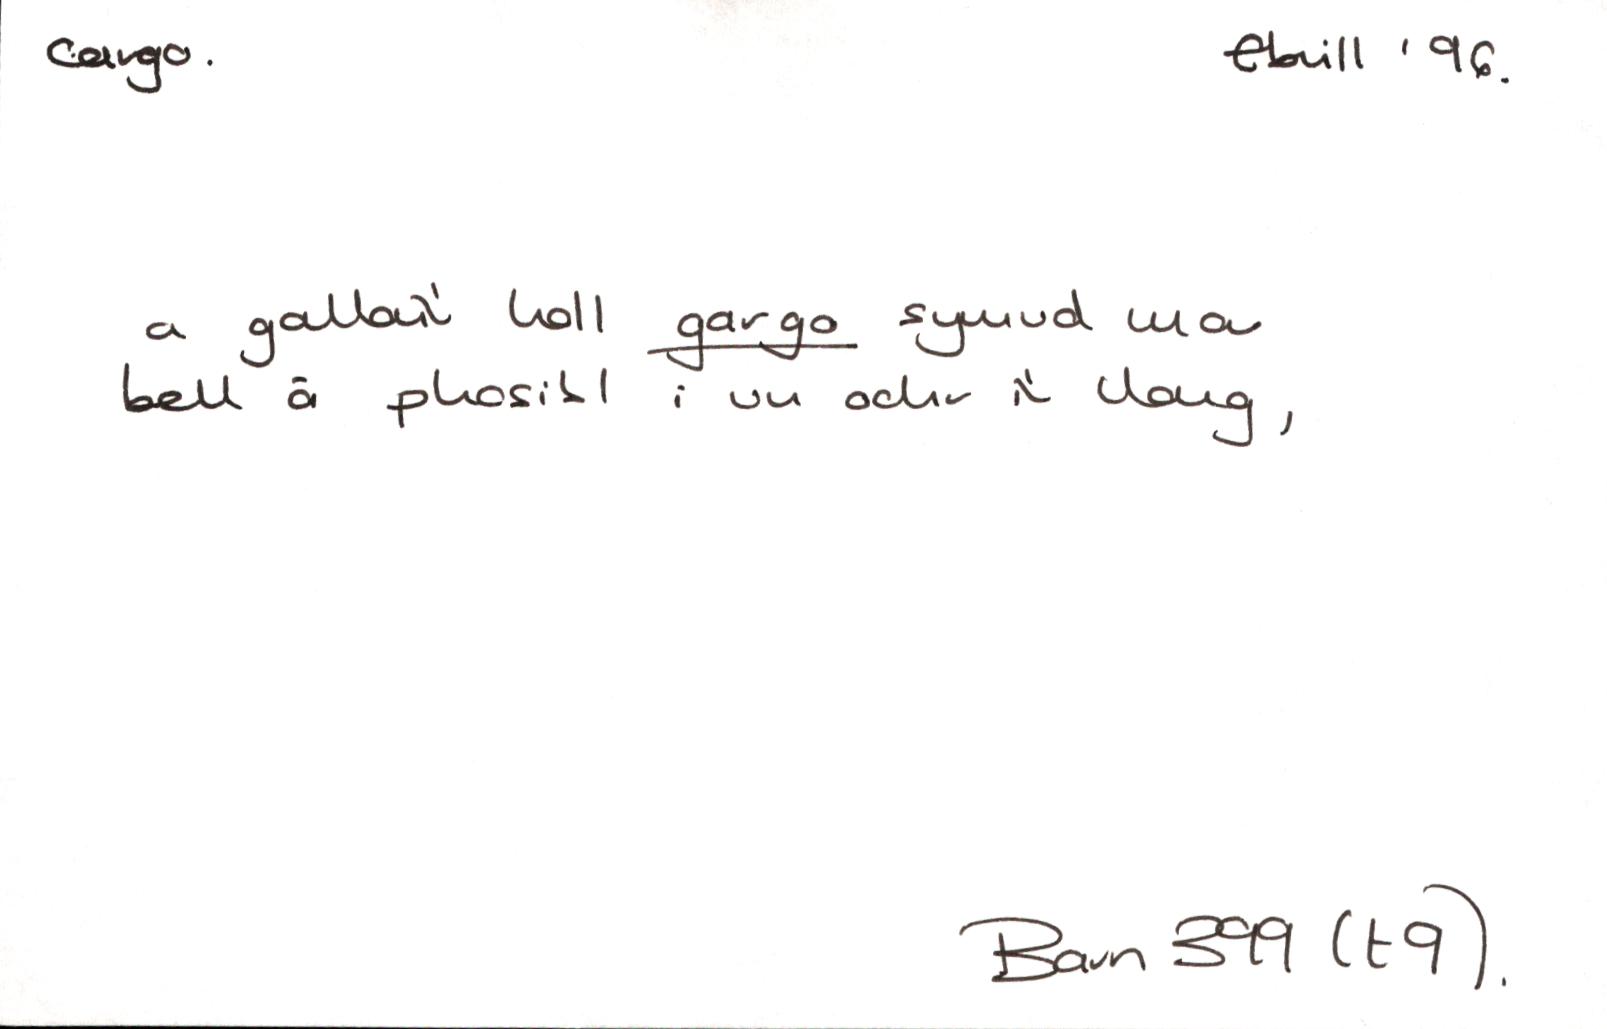 cargo. Ebrill '96.
a gallai'r holl gargo symud mor
bell â phosibl i un ochr i'r llong,
Barn 399 (t9).